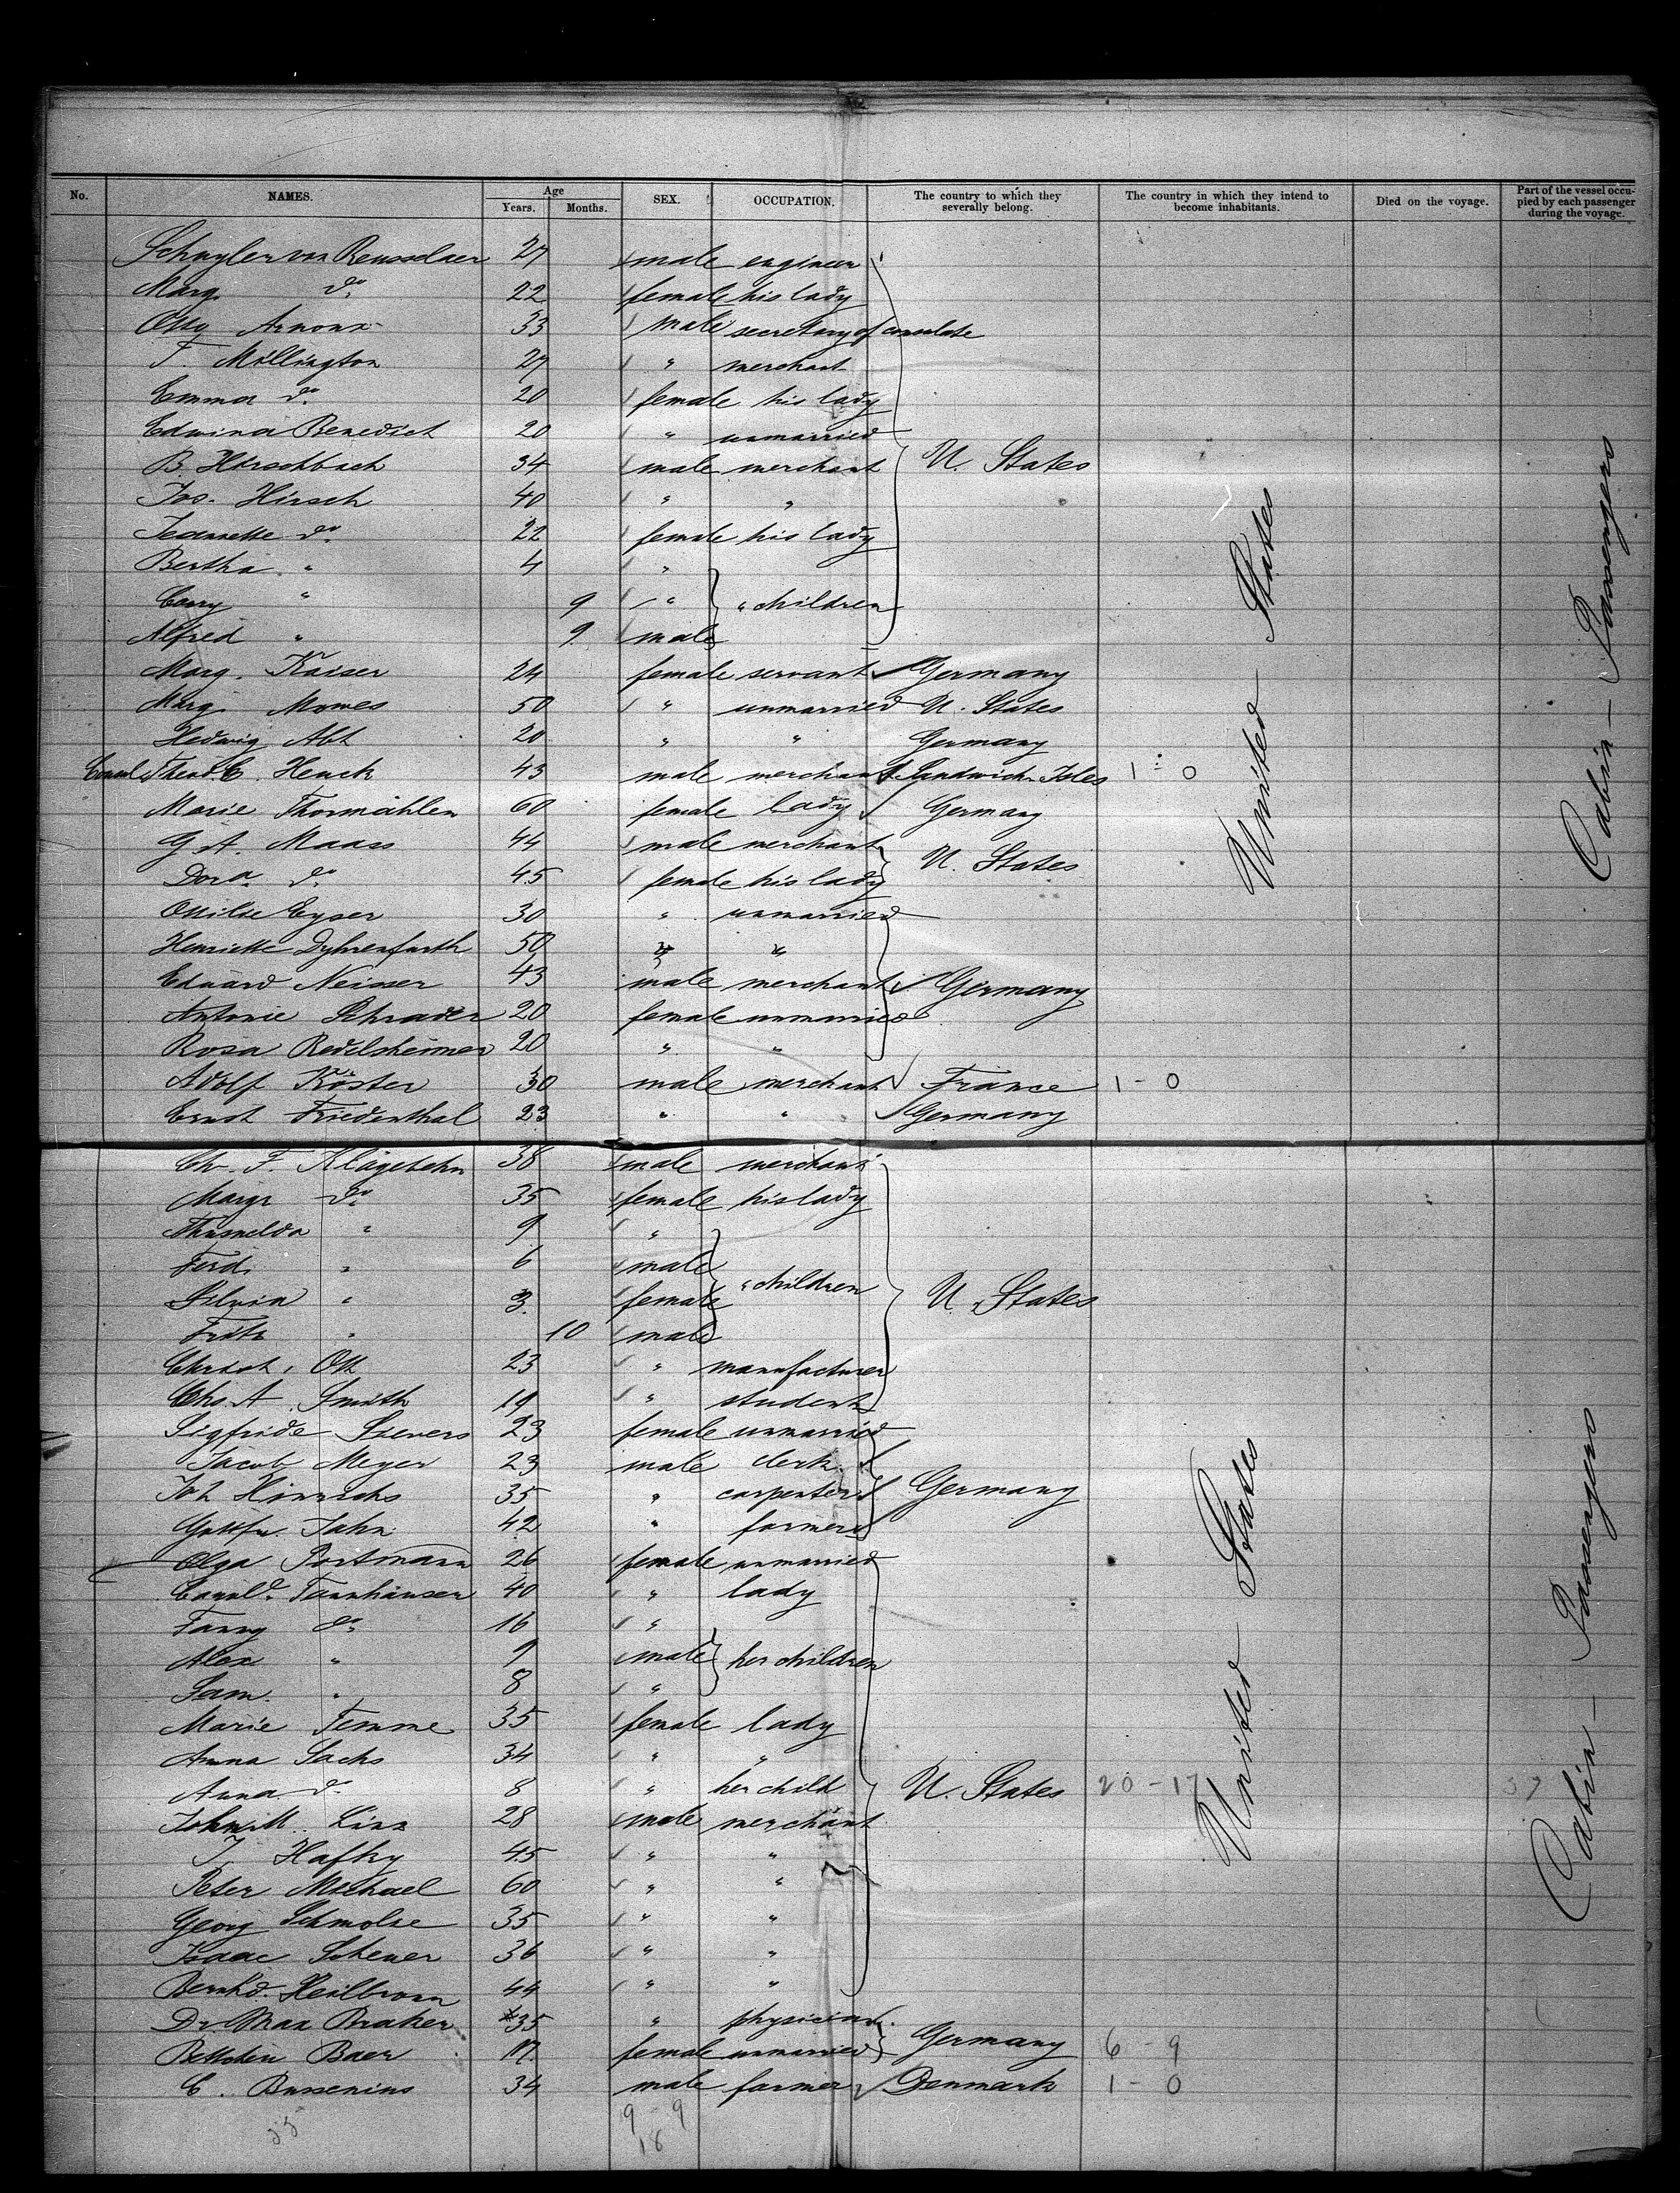 No. NAMES. Age Years. Months. SEX. OCCUPATION. The country to which they severally belong. The country in which they intend to become inhabitants. Died on the voyage. Part of the vessel occupied by each passenger during the voyage.
Schuyler van Rensselaer 27 male engineer
Marg. do. 22 female his lady
Otto Arnoux 33 male secretary of consulate
F. Millington 27 " merchant
Emma do. 20 female his lady
Edwina Benedict 20 " unmarried
B. Hirschbach 34 male merchant U. States
Jos. Hirsch 40 " "
Jeanette do. 22 female his lady
Bertha " 4 "
Carry " 9 " " children
Alfred " 9 male
Marg. Kaiser 24 female servant Germany
Marg. Momes 50 " unmarried U. States
Hedwig Abt 20 " " Germany
Consul Theod C. Heuck 43 male merchant Sandwich Isles 1 - 0
Marie Thormählen 60 female lady Germany
G. A. Maass 44 male merchant
Dora do. 45 female his lady U. States
Ottilie Eyser 30 " unmarried
Henriette Dyhrenfurth 50 " "
Eduard Neisser 43 male merchant Germany
Antonie Schrader 20 female unmarried
Rosa Redelsheimer 20 " "
Adolf Köster 30 male merchant France 1 - 0
Ernst Friedenthal 23 " " Germany
United States
Cabin - Passengers
Chr. F. Klagetehn 38 male merchant
Margr do. 35 female his lady
Thusnelda " 9 "
Ferd. " 6 male
Silvia " 3 female " children U. States
Fritz " 10 male
Christ. Ott 23 " manufacturer
Chs. A. Smith 19 " student
Sigfride Sievers 23 female unmarried
Jacob Meyer 23 male clerk
Joh Hinrichs 35 " carpenter Germany
Gottfr. Jahn 42 " farmer
Olga Portmann 26 female unmarried
Tannhäuser 40 " lady
Fanny do. 16 "
Alex " 9 male her children
Sam. " 8 "
Marie Temme 35 female lady
Anna Sachs 34 " "
Anna do. 8 " her child U. States 20 - 17 37
John M. 28 male merchant
J. Hafky 45 " "
Peter Michael 60 " "
Georg Schmolze 35 " "
Isaac Scheuer 36 " "
Bernhd. Heilbronn 44 " "
Dr. Max Braker 35 " physician
Baer 17 female unmarried Germany 6 - 9
C. Bussenius 34 male farmer Denmark 1 - 0
United States
Cabin - Passengers
9 9
18